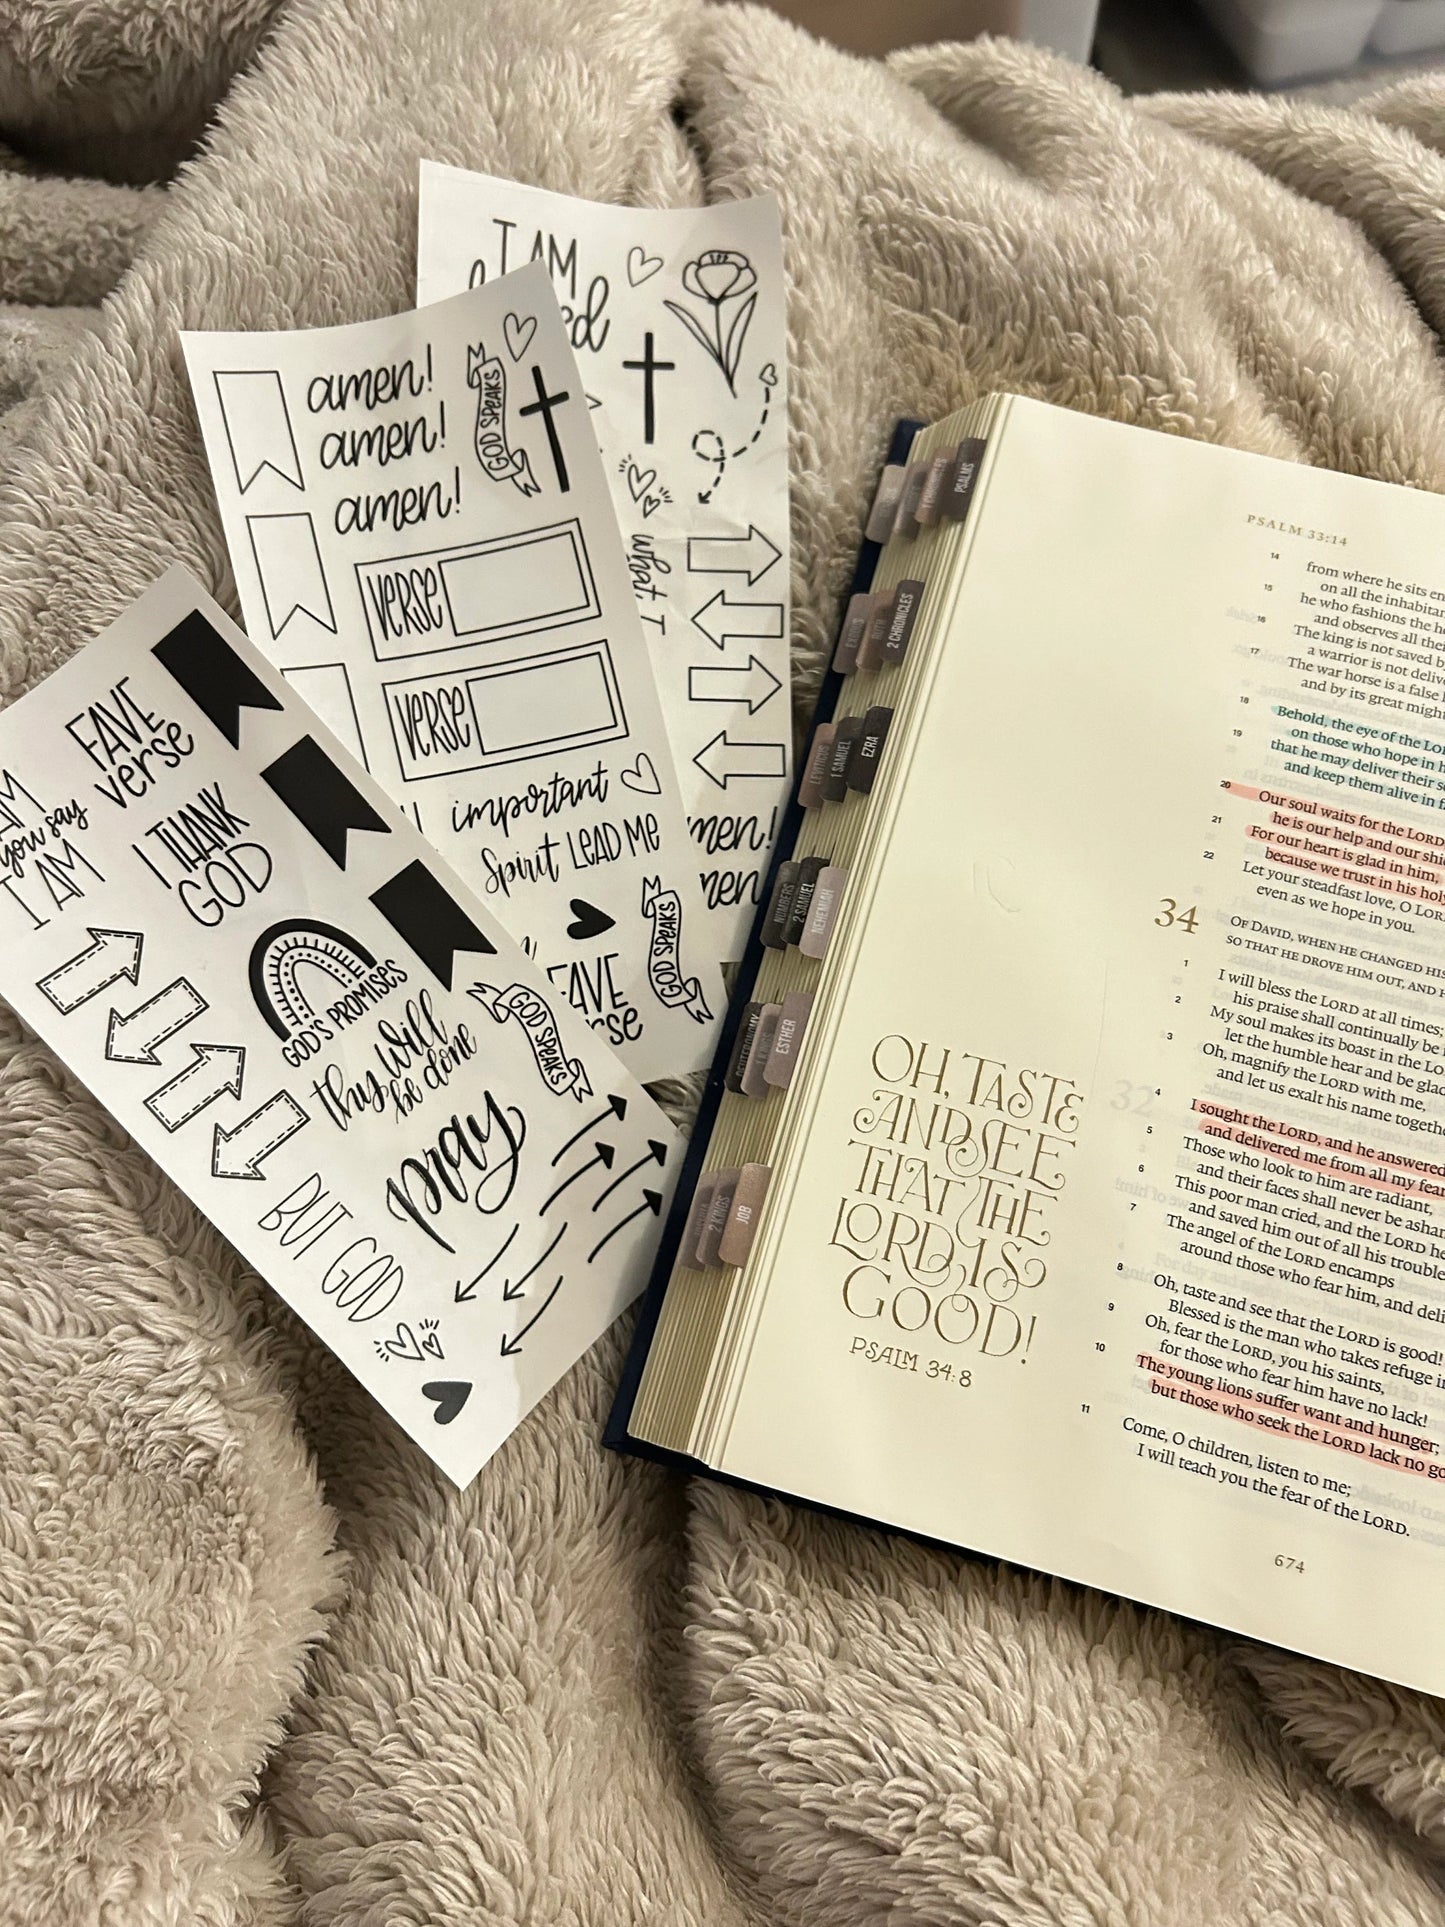 I AM
amen!
amen!
amen!
GOD SPEAKS
VERSE
VERSE
important
Spirit LEAD ME
GOD SPEAKS
what I
FAVE
verse
I THANK
GOD
you say
I AM
GOD'S PROMISES
thy will
be done
GOD SPEAKS
pray
BUT GOD
PSALMS
EXODUS
RUTH
2 CHRONICLES
LEVITICUS
1 SAMUEL
EZRA
NUMBERS
2 SAMUEL
NEHEMIAH
DEUTERONOMY
1 KINGS
ESTHER
2 KINGS
JOB
OH, TASTE
AND SEE
THAT THE
LORD IS
GOOD!
PSALM 34:8
PSALM 33:14
14 from where he sits
15 on all the
he who fashions the
16 and observes all
The king is not saved
17 a warrior is not
The war horse is a false
and by its great
18 Behold, the eye of the
19 on those who hope in
that he may deliver their
and keep them alive in
20 Our soul waits for the LORD
21 he is our help and our
For our heart is glad in him,
22 because we trust in his
Let your steadfast love, O
even as we hope in you.
34 OF DAVID, WHEN HE CHANGED HIS
SO THAT HE DROVE HIM OUT, AND
1 I will bless the LORD at all times;
2 his praise shall continually be
My soul makes its boast in the
3 let the humble hear and be
Oh, magnify the LORD with me,
and let us exalt his name
4 I sought the LORD, and he answered
5 and delivered me from all my
Those who look to him are radiant,
6 and their faces shall never be
This poor man cried, and the LORD
7 and saved him out of all his
The angel of the LORD encamps
8 around those who fear him, and
Oh, taste and see that the LORD is good!
9 Blessed is the man who takes refuge
Oh, fear the LORD, you his saints,
10 for those who fear him have no lack!
The young lions suffer want and hunger;
11 but those who seek the LORD lack no
Come, O children, listen to me;
I will teach you the fear of the LORD.
674